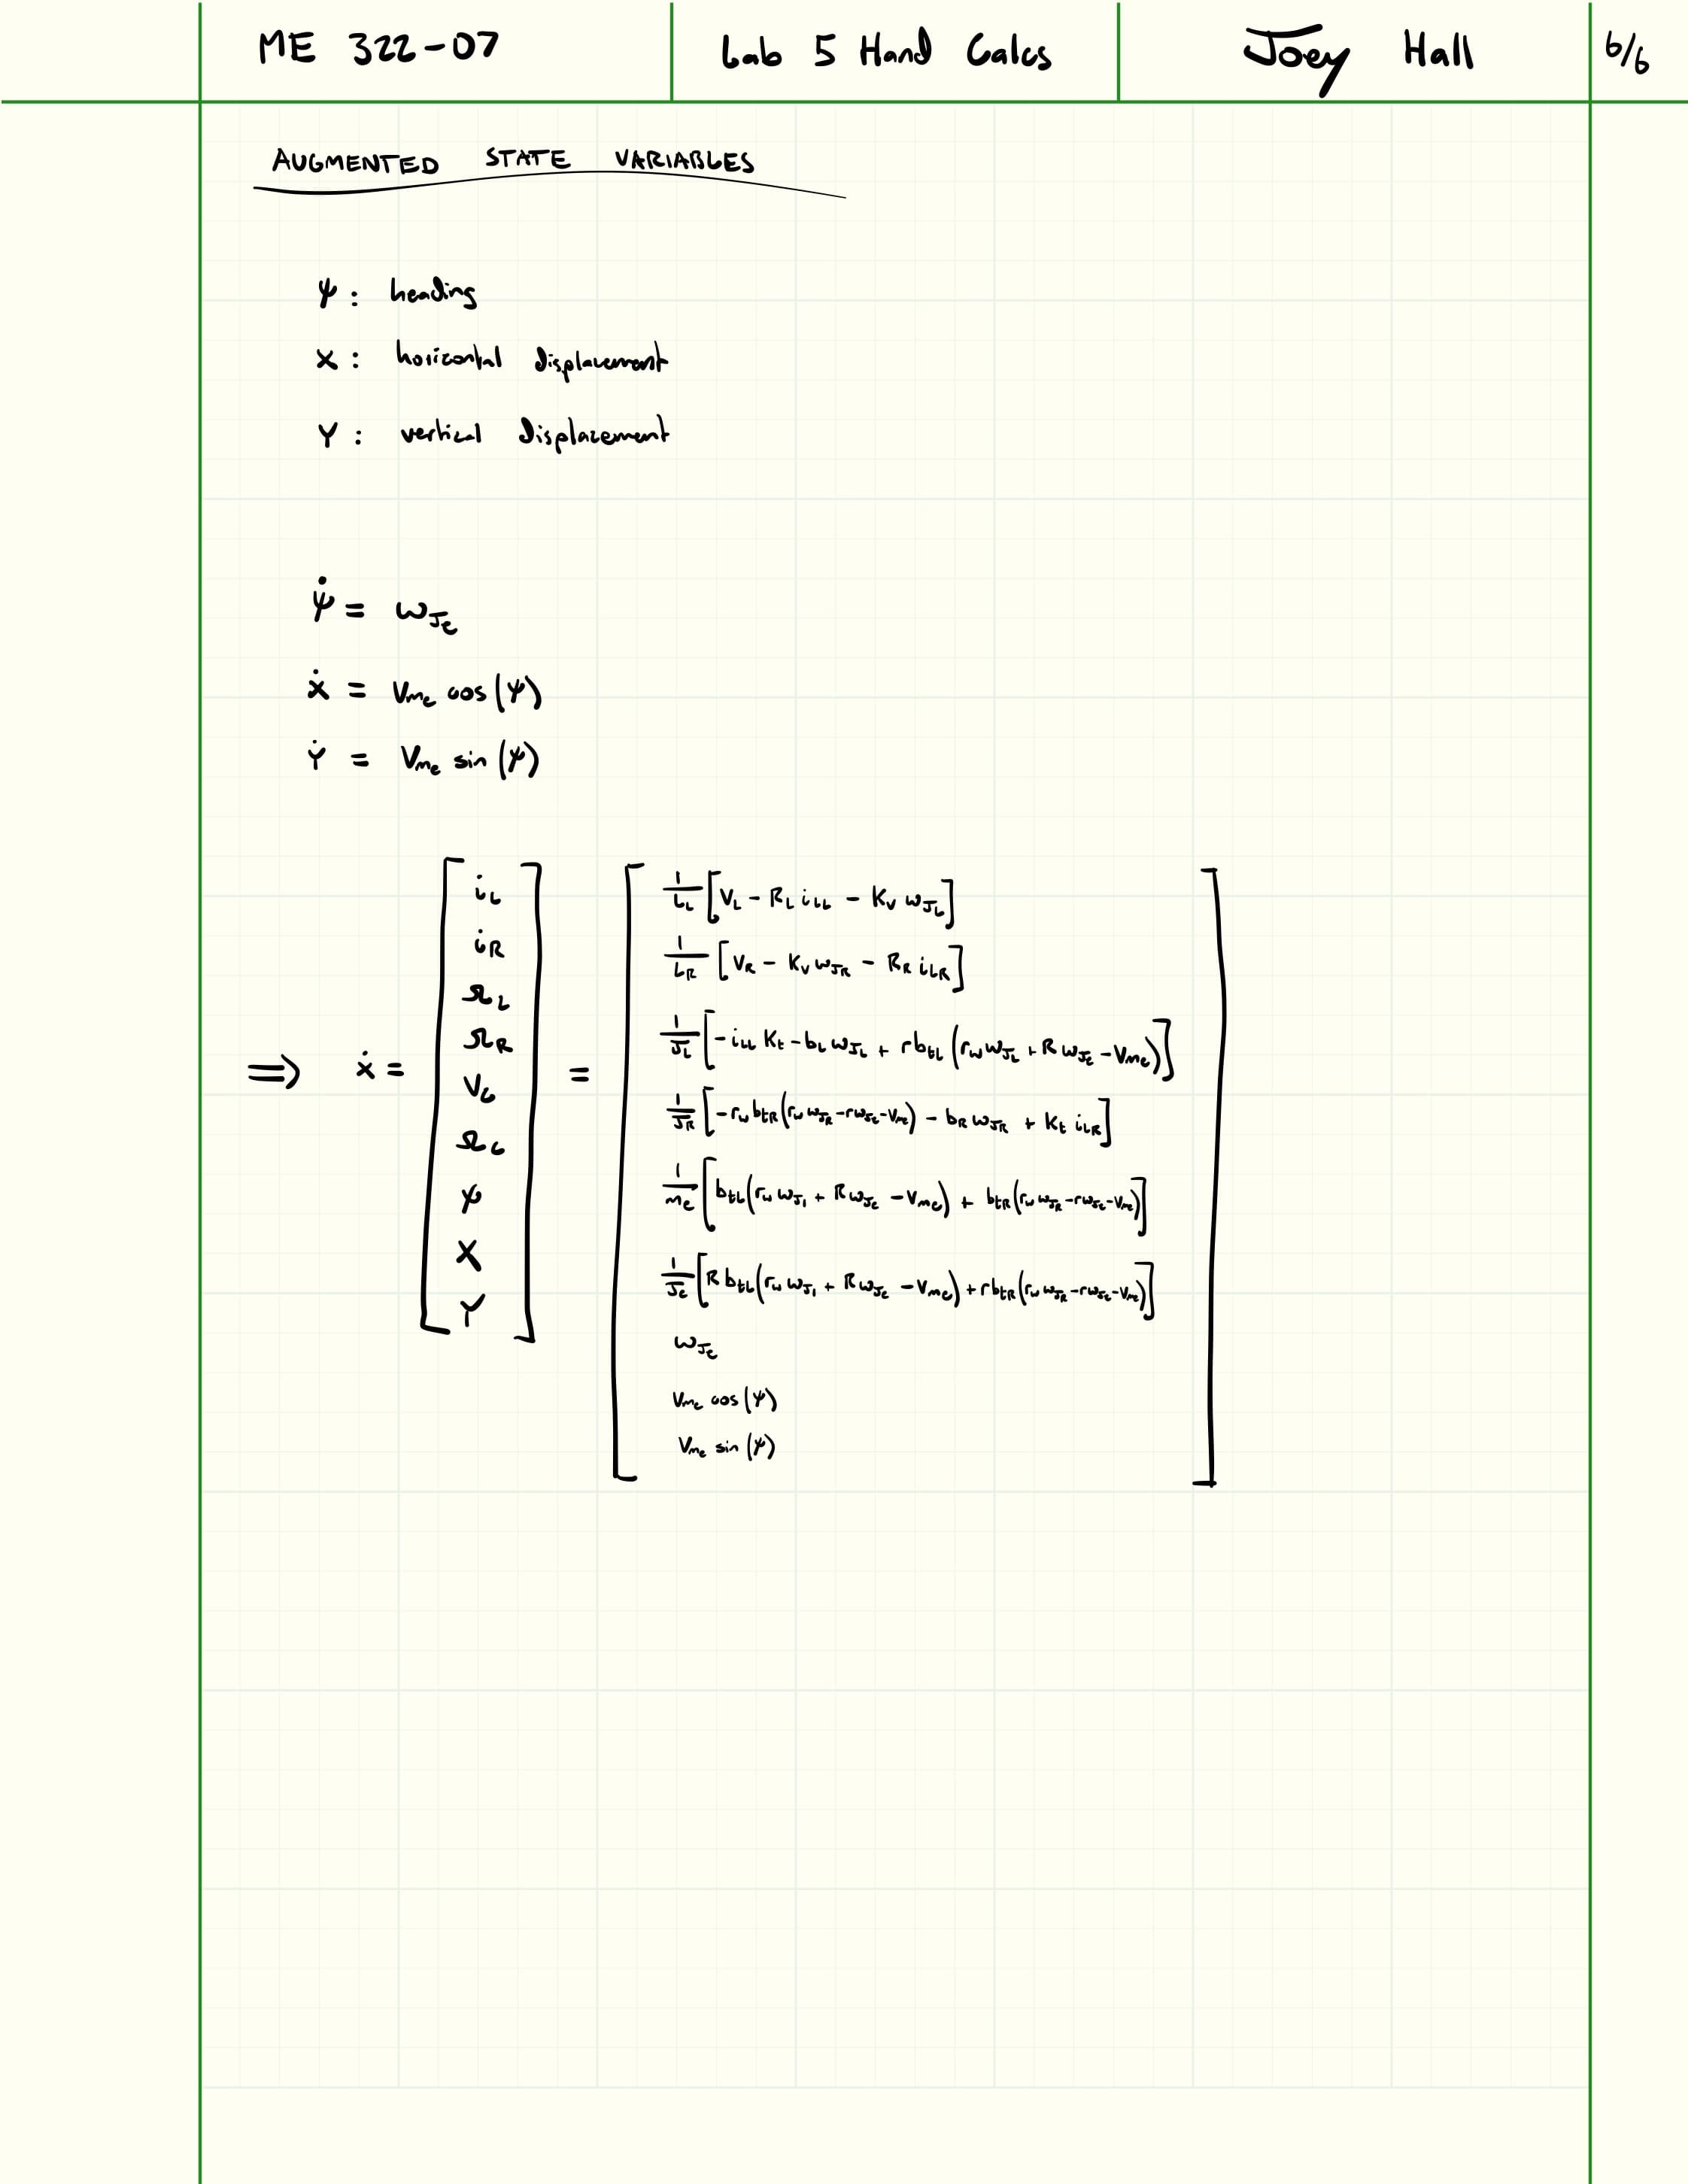 ME 322-07
Lab 5 Hand Calcs
Joey Hall
6/6
AUGMENTED STATE VARIABLES
ψ : heading
X : horizontal displacement
Y : vertical displacement
ψ̇ = ω_Jc
ẋ = V_mc cos(ψ)
Ẏ = V_mc sin(ψ)
⇒ ẋ = [ i_L
i_R
Ω_L
Ω_R
V_C
Ω_C
ψ
X
Y ] =
[ 1/L_L [V_L − R_L i_LL − K_V ω_JL]
1/L_R [V_R − K_V ω_JR − R_R i_LR]
1/J_L [−i_LL K_t − b_L ω_JL + r b_tL (r_w ω_JL + R ω_Jc − V_mc)]
1/J_R [−r_w b_tR (r_w ω_JR − r ω_Jc − V_mc) − b_R ω_JR + K_t i_LR]
1/m_c [b_tL (r_w ω_J1 + R ω_Jc − V_mc) + b_tR (r_w ω_JR − r ω_Jc − V_mc)]
1/J_c [R b_tL (r_w ω_J1 + R ω_Jc − V_mc) + r b_tR (r_w ω_JR − r ω_Jc − V_mc)]
ω_Jc
V_mc cos(ψ)
V_mc sin(ψ) ]